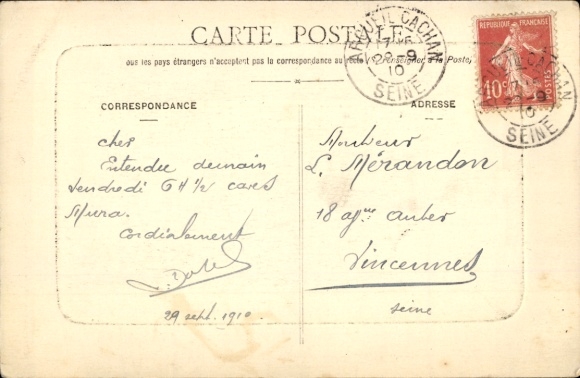 CARTE POSTALE
Tous les pays étrangers n'acceptent pas la correspondance au recto (Se renseigner à la Poste)
CORRESPONDANCE
ADRESSE
ARCUEIL CACHAN
29-9
10
SEINE
RÉPUBLIQUE FRANÇAISE
10c
POSTES
CACHAN
10
SEINE
Cher
Entendu demain
Vendredi 6 H ½ café
Mura.
Cordialement
29 sept. 1910
Monsieur
L. Mérandon
18 Auber
Vincennes
Seine